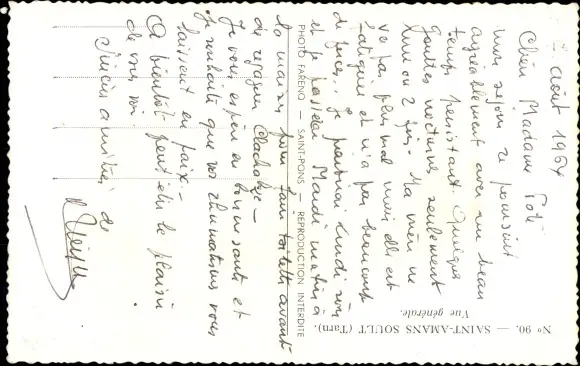 août 1964
Chère Madame
mon séjour se poursuit
agréablement avec un beau
temps persistant. Quelques
gouttes nocturnes seulement
une ou 2 fois. Ma mère ne
va pas plus mal mais elle est
fatiguée et n'a pas beaucoup
de forces. Je partirai lundi soir
et je passerai Mardi matin à
la maison pour faire toilette avant
de regagner
Je vous espère en bonne santé et
je souhaite que vos rhumatismes vous
laissent en paix.
A bientôt peut être le plaisir
de vous voir.
Sincères amitiés de
PHOTO FARENQ — SAINT-PONS — REPRODUCTION INTERDITE
No 90. — SAINT-AMANS SOULT (Tarn).
Vue générale.